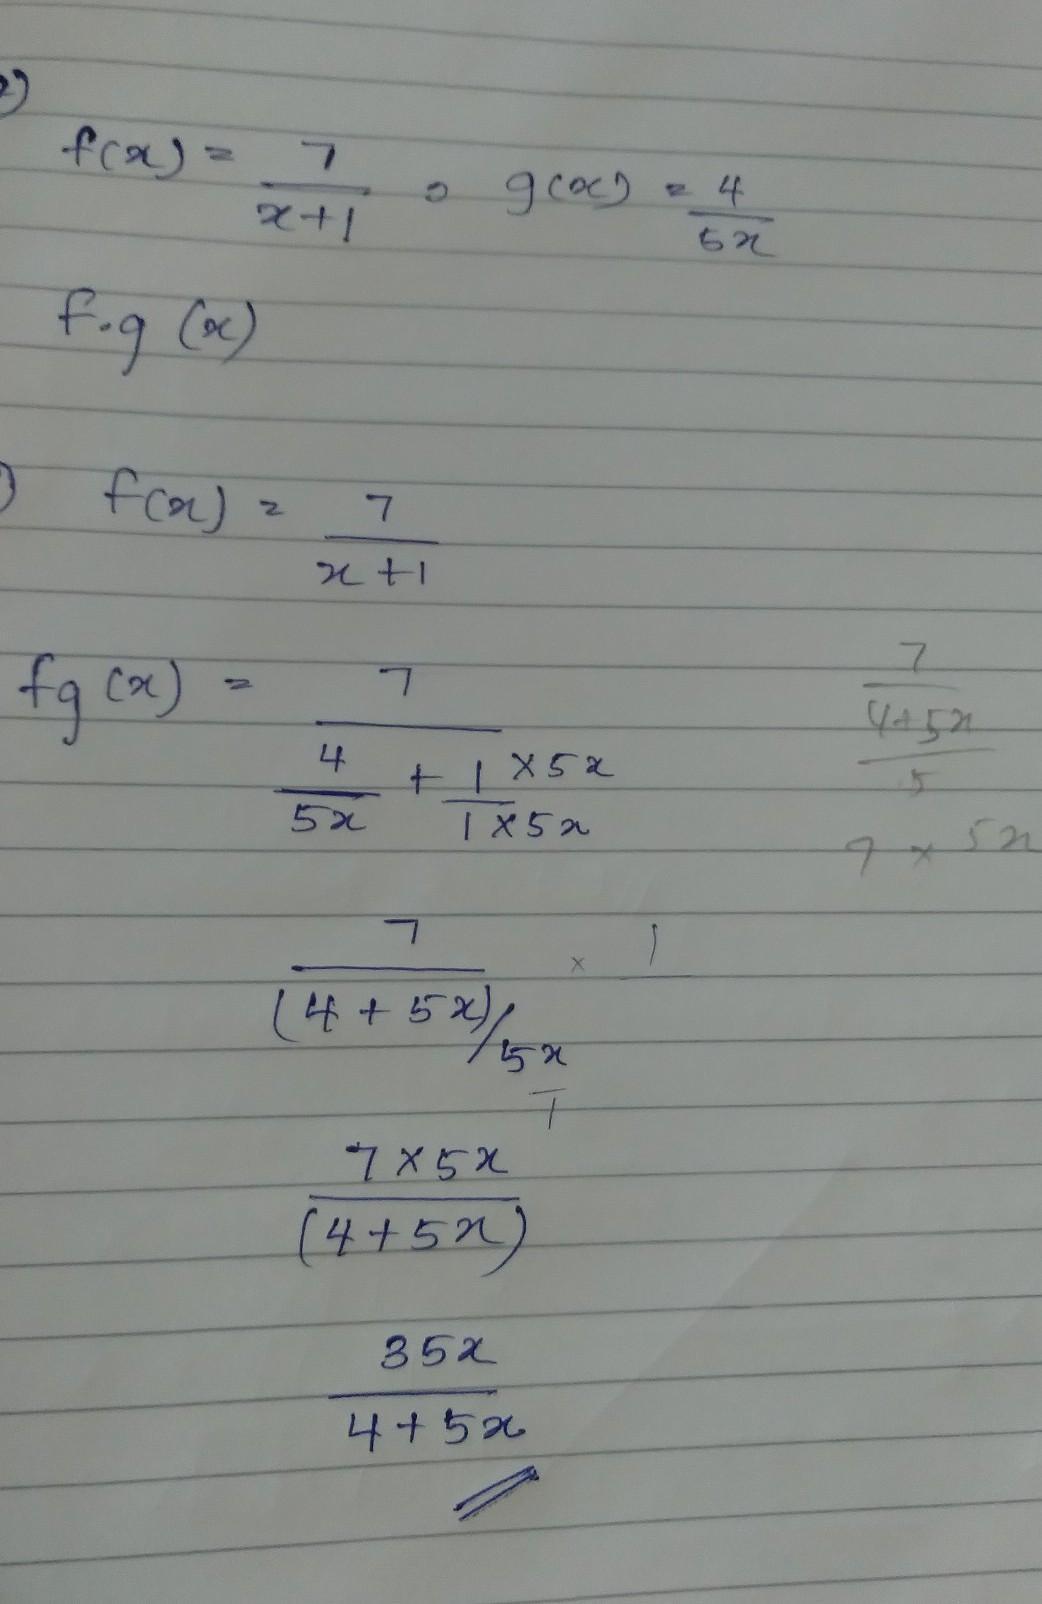 2)
f(x) = 7/(x+1) , g(x) = 4/(5x)
f.g (x)
) f(x) = 7/(x+1)
fg(x) = 7/(4/(5x) + (1 × 5x)/(1 × 5x))
7/((4+5x)/5
7 × 5x
7/((4+5x)/5x) × 1
1
(7 × 5x)/(4+5x)
35x/(4+5x)